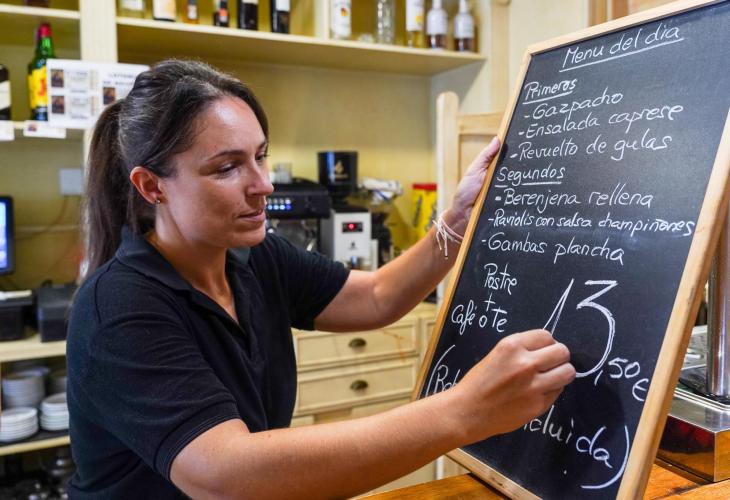 Menu del dia
Primeros
- Gazpacho
- Ensalada caprese
- Revuelto de gulas
Segundos
- Berenjena rellena
- Raviolis con salsa champiñones
- Gambas plancha
Postre
+
Café o te
13,50€